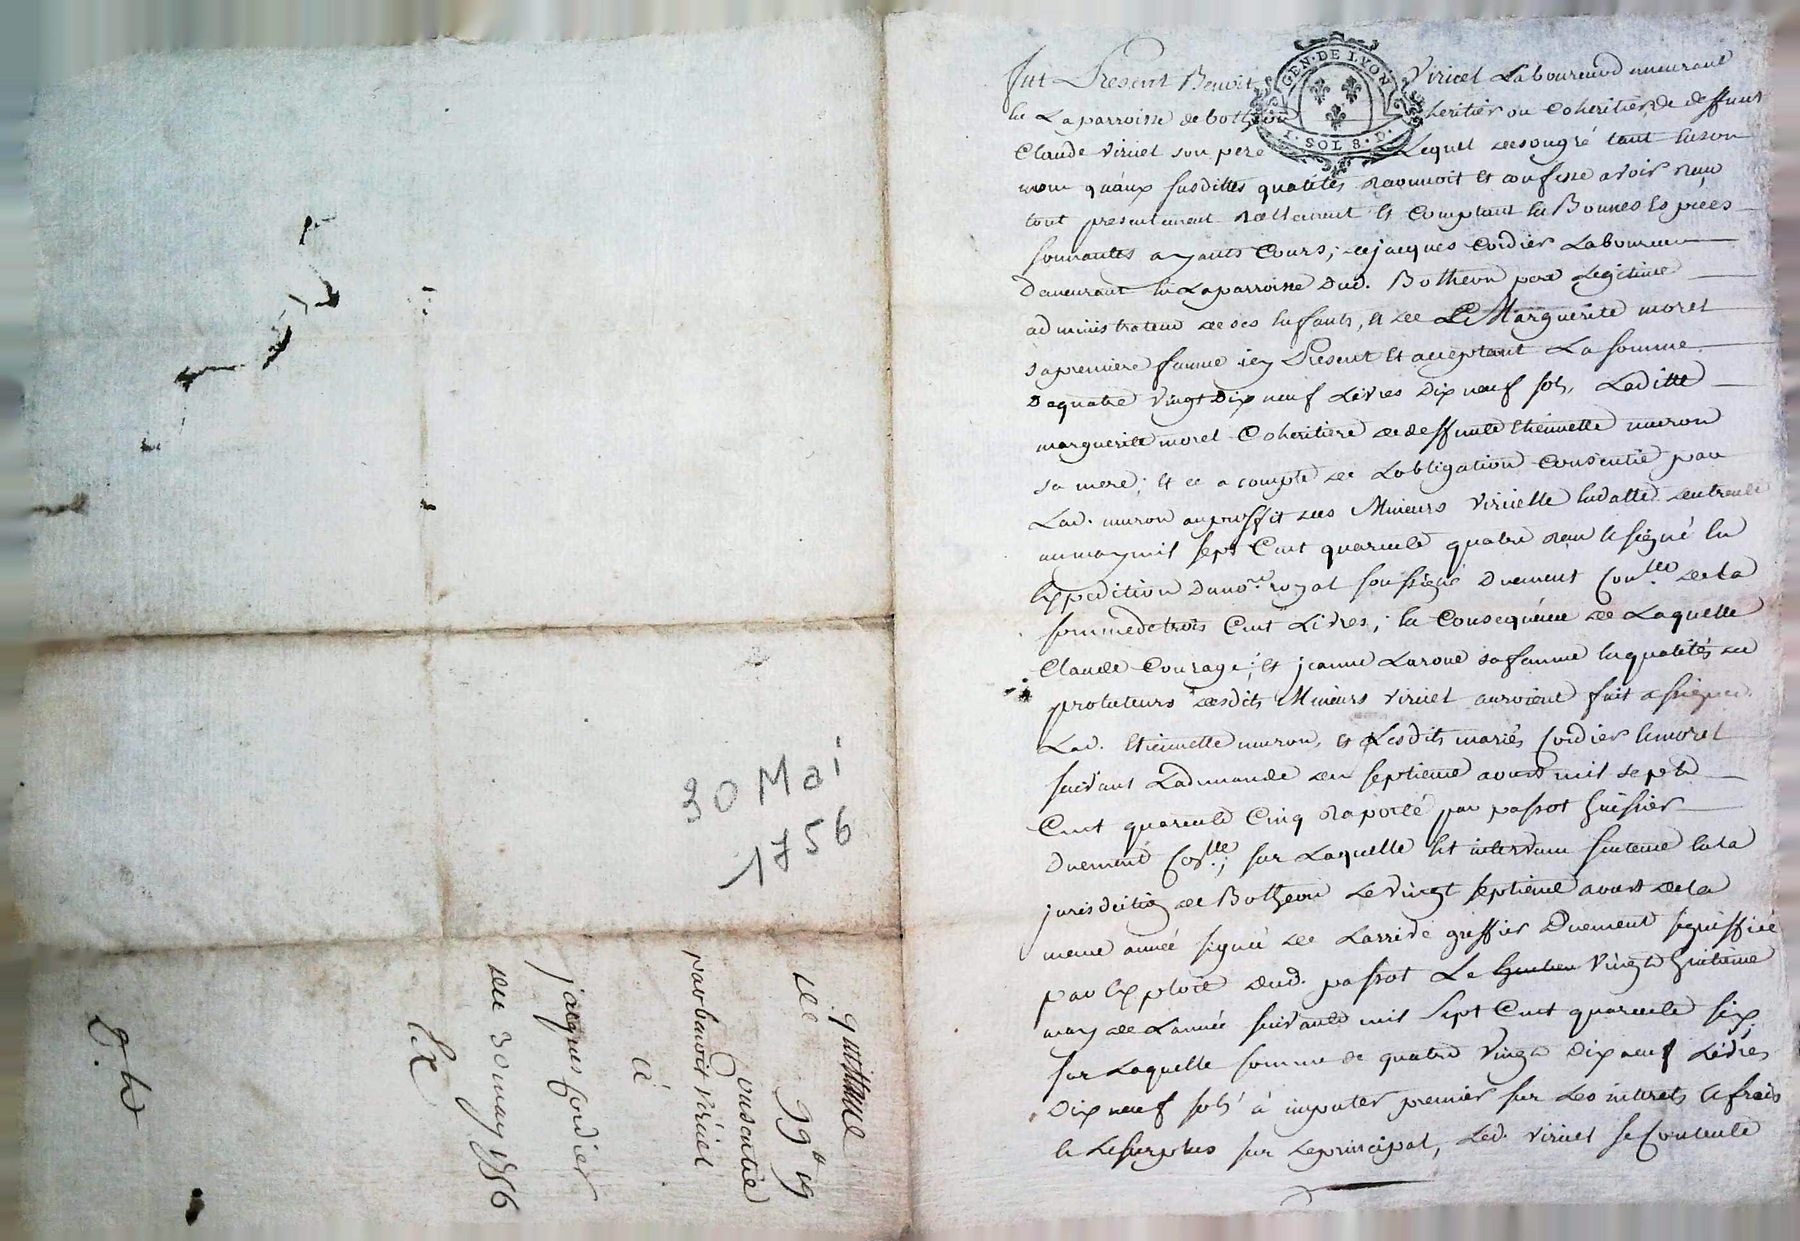 30 Mai
1756
quittance
de 99# 19
consentie
par benoit Viricel
à
jacques Cordier
du 30 may 1756
Ex
GEN. DE LYON
1. SOL 8. D.
fut Present Benoit Viricel Laboureur demeurant
en La parroisse de bothéon heritier ou Coheritier de deffunt
Claude Viricel son pere Lequel de son gré tant en son
nom qu'aux susdittes qualités reconnoit et confesse avoir reçu
tout presentement reellement et Comptant en Bonnes Espéces
sonnantes ayants Cours, de jacques Cordier Laboureur
demeurant en La parroisse dud. Botheon pere Legitime
administrateur de ses Enfants, et de Marguerite morel
sa premiere femme icy Present et acceptant La somme
De quatre Vingt Dix neuf Livres Dix neuf sols, Laditte
marguerite morel Coheritiere de deffunte Etiennette muron
sa mere; et ce a compte de L'obligation Consentie par
Lad. muron au proffit des Mineurs Viricelle en datte du trente
un may mil sept Cent quarente quatre reçu et signé en
Expedition du no.re royal soussigné Duement Con.llé de la
somme de trois Cent Livres; en Consequence de Laquelle
Claude Courage; et jeanne Laroue sa femme en qualités de
protuteurs desdits Mineurs Viricel auroient fait assigner
Lad. Etiennette muron, et Lesdits mariés Cordier et morel
suivant La demande du septieme aoust mil sept
Cent quarente Cinq raporté par passot huissier
Duement Co.llé; sur Laquelle Est intervenu sentence en la
jurisdiction de Bothéon Le Vingt septieme aoust de la
meme année signée de Larride greffier Duement signiffiée
par Exploit dud. passot Le Vingt huitieme
may de L'année suivante mil Sept Cent quarente six,
sur Laquelle somme de quatre Vingt Dix neuf Livres
Dix neuf sols à imputer premier sur Les interets et frais
et Le surplus sur Le principal, Led. Viricel se Contente